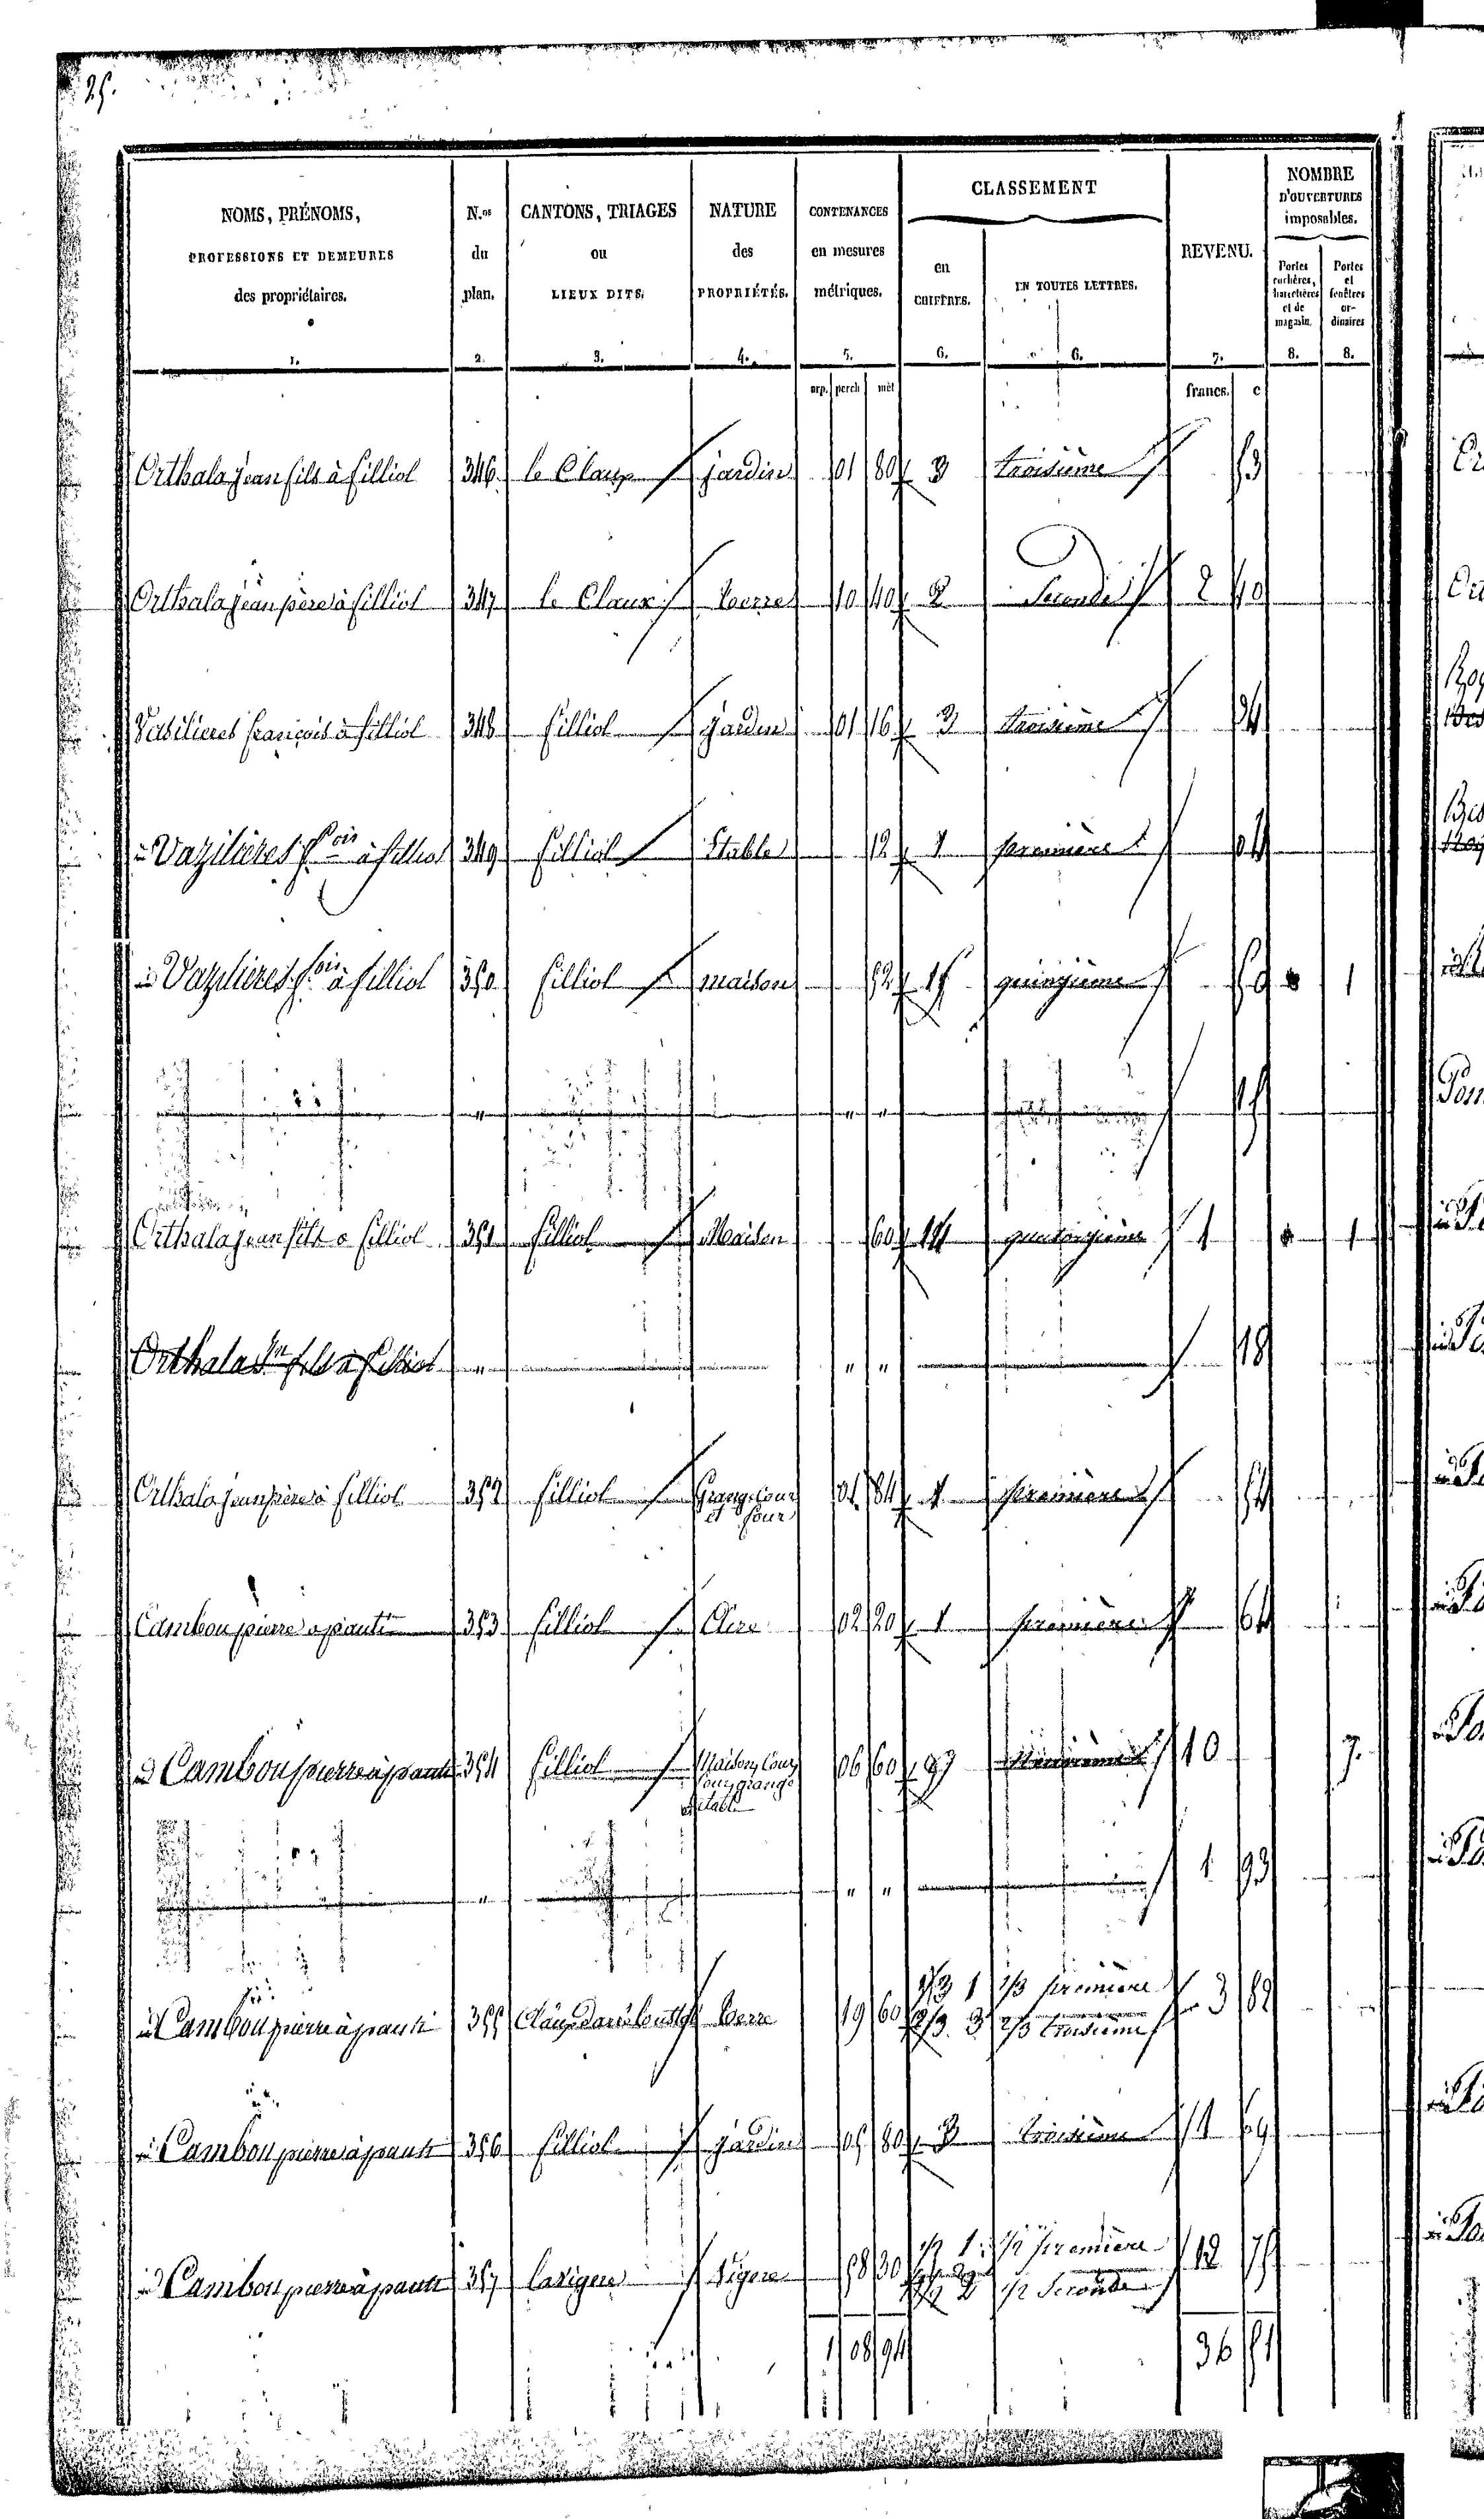 25.
NOMS, PRÉNOMS, PROFESSIONS ET DEMEURES des propriétaires. 1.
N.os du plan. 2.
CANTONS, TRIAGES ou LIEUX DITS. 3.
NATURE des PROPRIÉTÉS. 4.
CONTENANCES en mesures métriques. 5.
CLASSEMENT
en CHIFFRES. 6.
EN TOUTES LETTRES. 6.
REVENU. 7.
NOMBRE D'OUVERTURES imposables.
Portes cochères, charretières et de magasin. 8.
Portes et fenêtres ordinaires 8.
arp. perch mèt francs. c
Orthala jean fils à filliol 346 le Claux jardin 01 80 3 troisième 53
Orthala jean père à filliol 347 le Claux terre 10 40 2 Seconde 2 10
françois à filliol 348 filliol jardin 01 16 3 troisième 34
Vazilières f.ois à filliol 349 filliol Stable 12 1 première 04
Vazilieres f.ois à filliol 350 filliol maison 52 15 quinzième 1
" " " 15
Orthala jean fils a filliol 351 filliol Maison 60 14 quatorzième 1 1
Orthala Jn fils à filliol " " " 18
Orthala jean père à filliol 352 filliol Grange cour et four 01 84 1 première 54
Cambou pierre a paute 353 filliol Aire 02 20 1 première 64
Cambou pierre à paute 354 filliol Maison, Cour, four, grange et étable 06 60 10 7.
" " " 1 93
Cambou pierre à paute 355 terre 19 60 1/3 1 1/3 première 3 82
2/3 3 2/3 troisième
Cambou pierre à paute 356 filliol jardin 05 80 3 troisième 1 69
Cambou pierre à paute 357 lavigne Vigne 58 30 1/2 1 1/2 première 12 75
1/2 2 1/2 Seconde
1 08 94 36 51